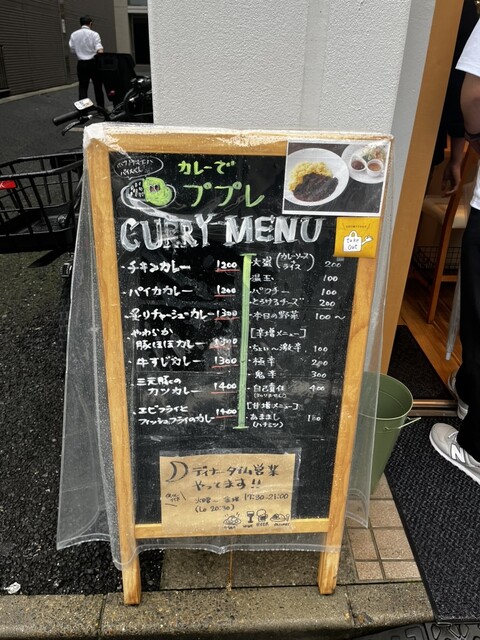 カレーで
ププレ
CURRY MENU
TAKE OUT
・チキンカレー 1200
・パイカカレー 1200
・炙りチャーシューカレー 1300
やわらか
豚ほほカレー 1300
・牛すじカレー 1300
三元豚の
カツカレー 1400
・エビフライと
フィッシュフライのカレー 1400
・大盛(カレーソース ライス) 200
・温玉 100
・パクチー 100
・とろけるチーズ 200
・本日の野菜 100〜
[辛増メニュー]
・ちょい〜激辛 100
・極辛 200
・鬼辛 300
・自己責任 400
[甘増メニュー]
・あままし 150
(ハチミツ)
ディナータイム営業
やってます!!
火曜〜金曜 17:30-21:00
(Lo 20:30)